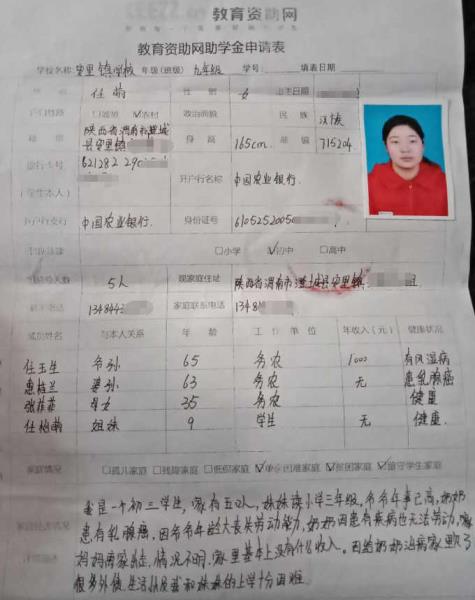 教育资助网
教育资助网助学金申请表
学校名称 安里镇学校 年级(班级) 九年级 学号: 填表日期
任萌 性 别 女 出生日期
户口性质 □城镇 ☑农村 政治面貌 民 族 汉族
陕西省渭南市澄城县安里镇 身 高 165cm 邮 编 715204
银行卡号 621282 290 开户行名称 中国农业银行.
(学生本人)
开户行支行 中国农业银行. 身份证号 6105252005
□小学 ☑初中 □高中
5人 现家庭住址 陕西省渭南市澄城县安里镇
134844 家庭联系电话 1348
成员姓名 与本人关系 年 龄 工 作 单 位 年收入(元) 健康状况
任玉生 爷孙 65 务农 1000 有风湿病
惠桂兰 婆孙 63 务农 无 患乳腺癌
张 母女 35 务农 健康
任柏萌 姐妹 9 学生 无 健康.
家庭情况 □孤儿家庭 □残障家庭 □低保家庭 ☑单亲困难家庭 ☑贫困家庭 ☑留守学生家庭
我是一个初三学生,家有五口人,妹妹读小学三年级,爷爷年事已高,奶奶
患有乳腺癌,因爷爷年龄大丧失劳动能力,奶奶因患有疾病也无法劳动,家
妈妈离家,情况不明,家里基本上没有什么收入。因给奶奶治病家里欠了
很多外债,生活以及我和妹妹的上学十分困难.